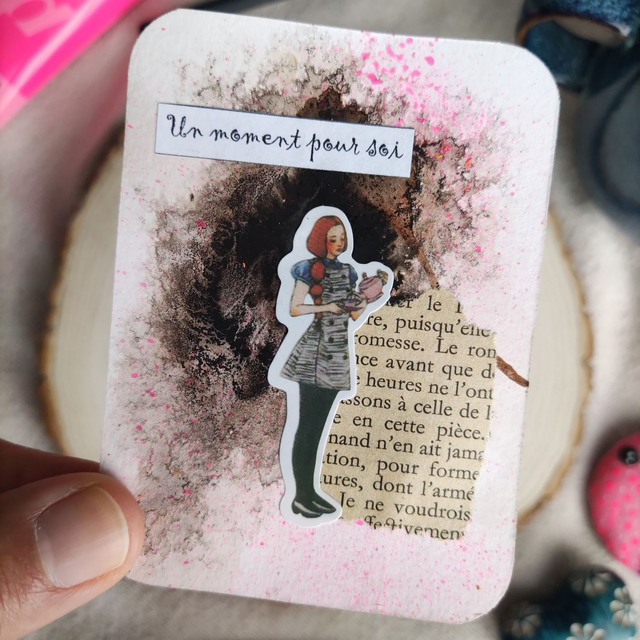 Un moment pour soi
er le
re, puisqu'elle
romesse. Le ron
nce avant que d
heures ne l'ont
ssons à celle de l
e en cette pièce.
nand n'en ait jama
tion, pour forme
ures, dont l'armé
Je ne voudrois
ffectivement